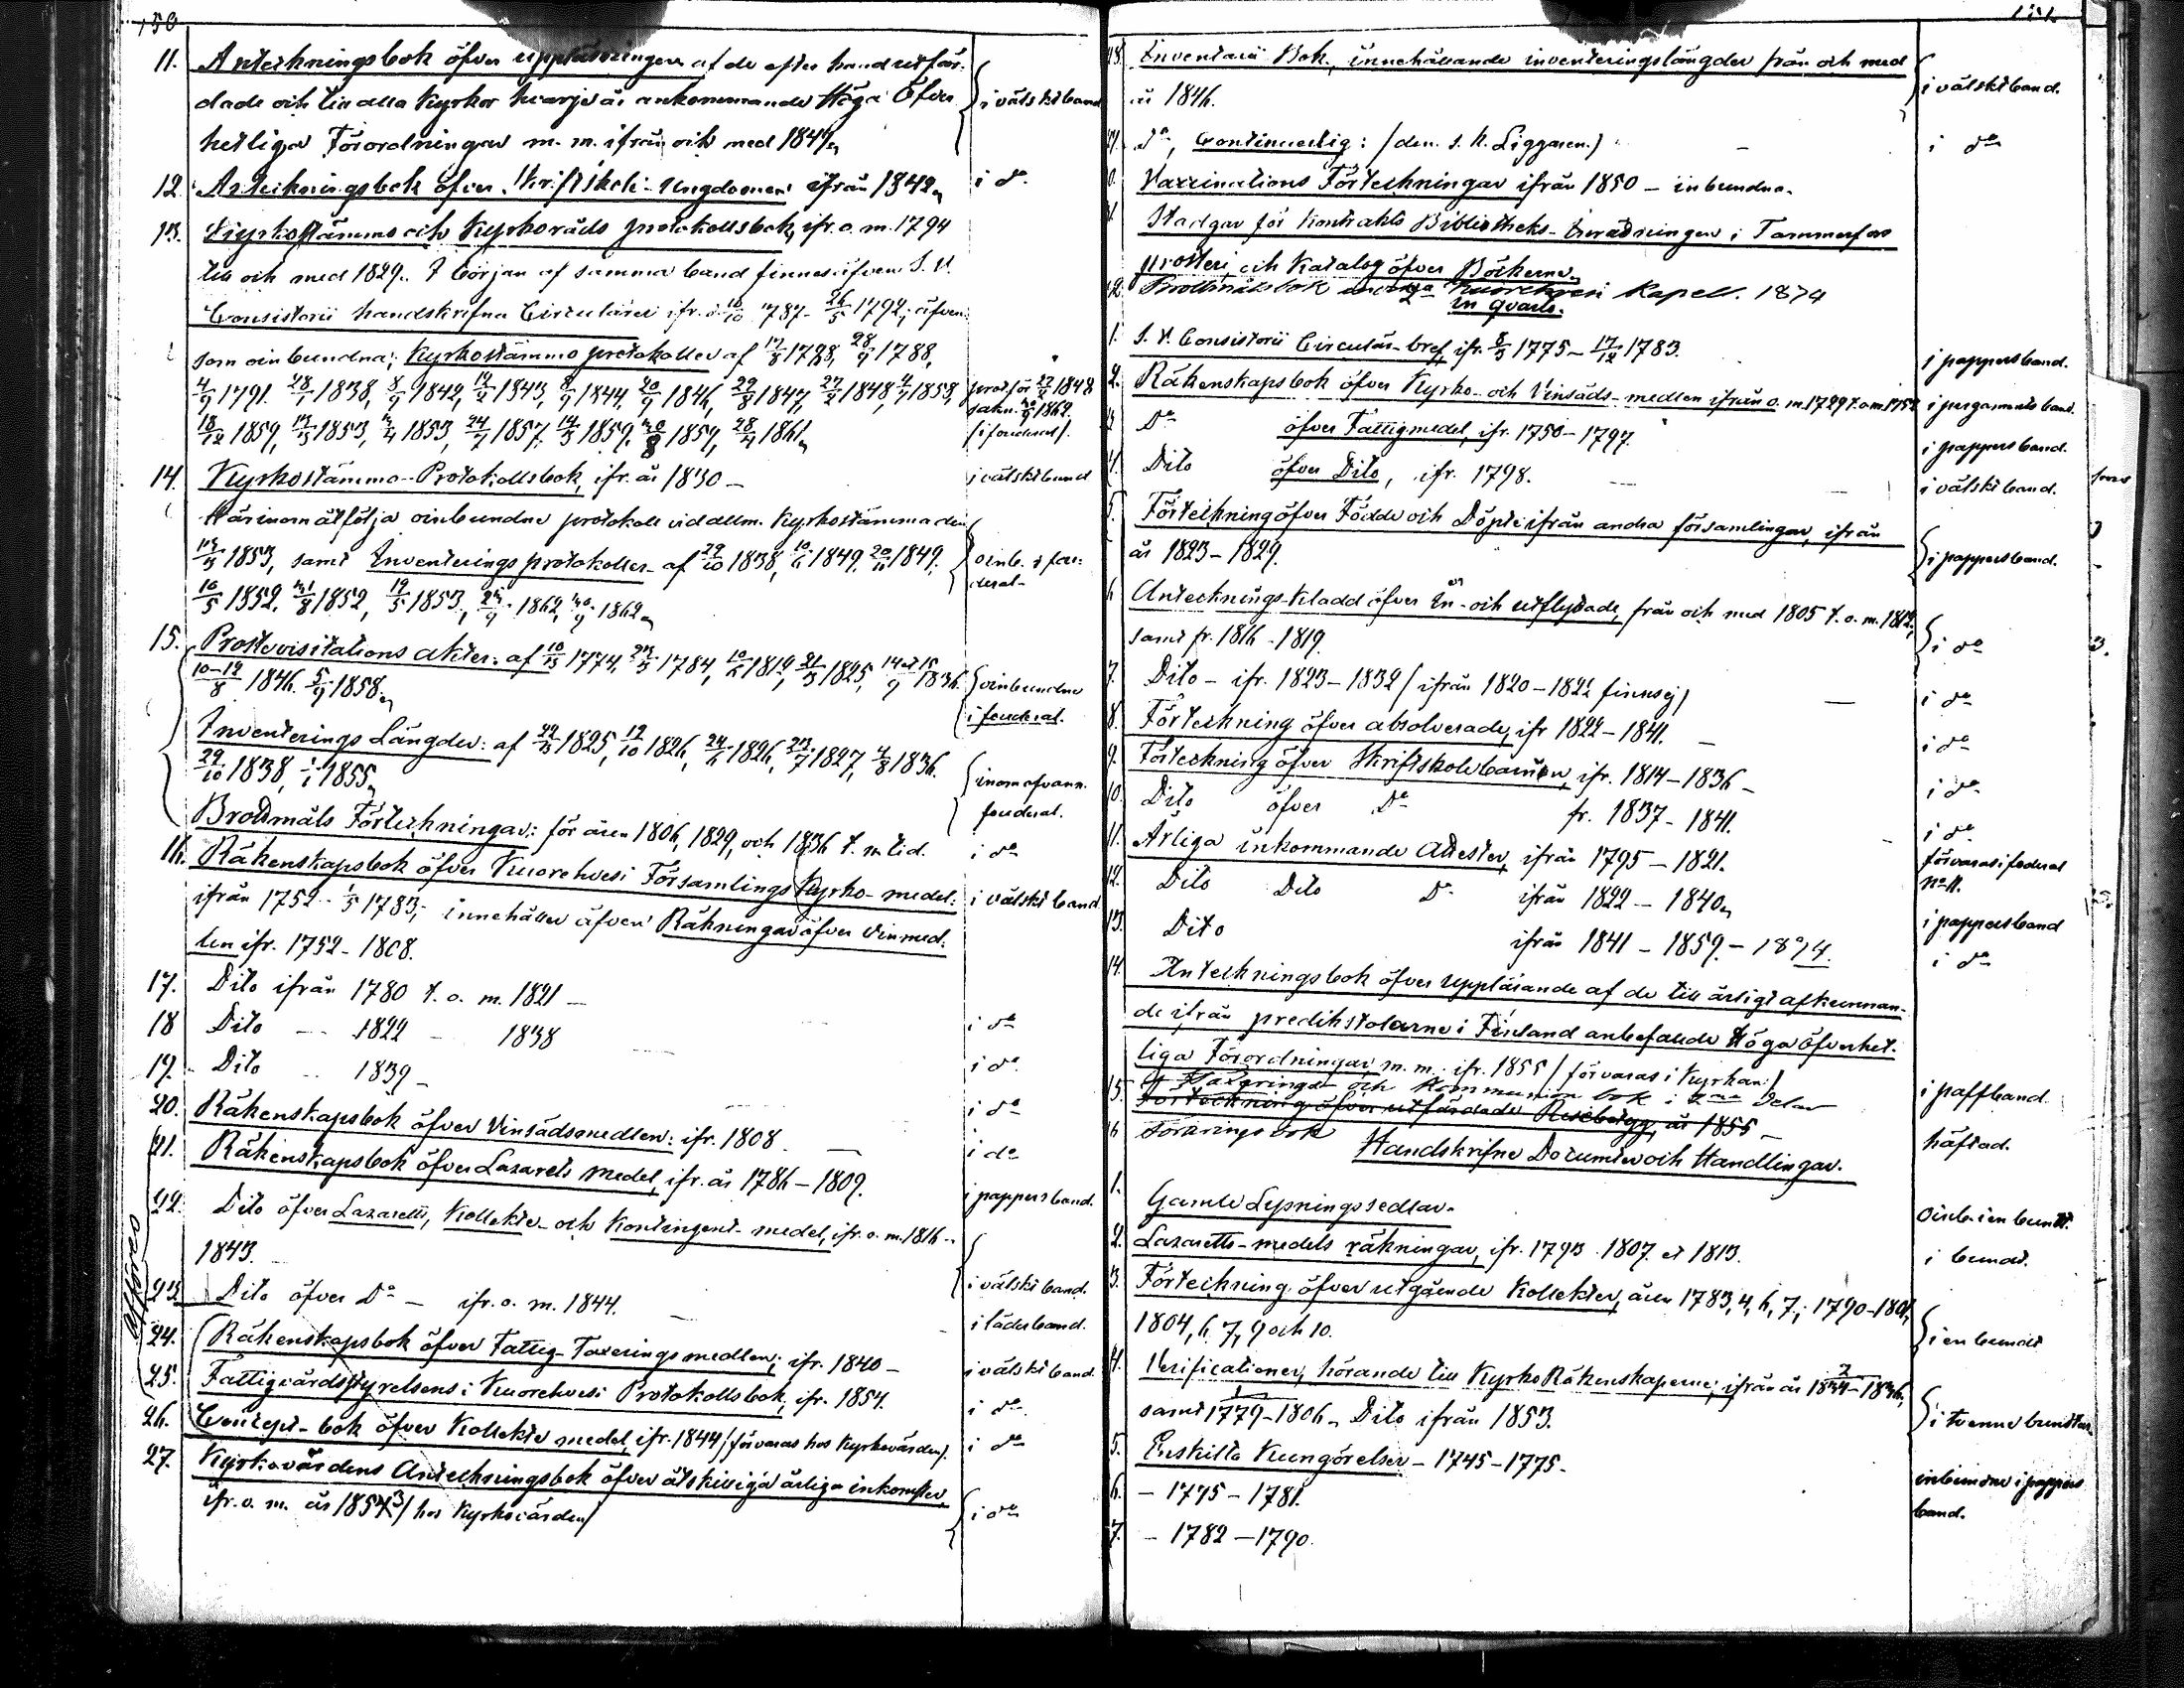 150
11. Anteckningsbok öfver uppläsningen af de efter hand utfär-
dade och till alla Kyrkor hvarje år ankommande Höga Öfver
hetliga Förordningar m. m. ifrån och med 1847.
i välskt band
12. Anteckningsbok öfver Skriftskole-Ungdomen ifrån 1842.
i do
13. Kyrkostämmo och Kyrkoråds protokollsbok, ifr. o. m. 1794
till och med 1829. I början af samma band finnes äfven S. V.
Consistorii handskrifna Circulärer ifr. 10/10 1787 - 26/5 1792; äfven
som oinbundna; Kyrkostämmo protokoller af 17/8 1788, 28/9 1788,
4/9 1791. 28/1 1838, 8/9 1842, 14/2 1843, 8/9 1844, 20/9 1846, 22/8 1847, 27/2 1848, 1858,
18/12 1859, 13/5 1853, 3/4 1853, 24/7 1857, 14/3 1859, 30/8 1859, 28/4 1861.
prot. för 27/2 1848
sakn. 30/9 1862.
(i fouderal).
14. Kyrkostämmo-Protokollsbok, ifr. år 1830 –
i välskt band
Härinom åtfölja oinbundne protokoll vid allm. Kyrkostämma den
13/3 1853, samt Inventerings protokoller af 29/10 1838, 10/6 1849, 20/11 1849.
10/5 1852. 31/8 1852, 19/5 1853, 24/9 1862, 30/9 1862.
oinb. i fou-
deral-
15. Prostevisitations akter: af 10/3 1774. 23/3 1784, 10/6 1812, 21/3 1825, 14 et 15/9 1836.
10-12/8 1846. 5/9 1858.
oinbundne
i fouderal.
Inventerings Längder: af 22/3 1825, 12/10 1826, 24/6 1826, 23/7 1827, 4/8 1836.
29/10 1838, 1/1 1855.
inom ofvann.
fouderal.
Brottmåls Förteckningar: för åren 1806, 1829, och 1836 t. m. tid.
i do
16. Räkenskapsbok öfver Kuorehvesi Församlings Kyrko-medel:
ifrån 1752 - 1/5 1783; innehåller äfven Räkningar öfver Vinmed-
len ifr. 1752 - 1808.
i välskt band
17. Dito ifrån 1780 t. o. m. 1821 –
i do
18 Dito – 1822 – 1838
i do
19. Dito – 1839 –
i do
20. Räkenskapsbok öfver Vinsädsmedlen: ifr. 1808
i do
21. Räkenskapsbok öfver Lazarets medel, ifr. år 1786 – 1809.
i pappersband.
22. Dito öfver Lazaretts, Kollekte- och Kontingent- medel, ifr. o. m. 1816 -
1843.
i välskt band.
23. Dito öfver Do – ifr. o. m. 1844.
i läderband.
24. Räkenskapsbok öfver Fattig-Taxerings medlen; ifr. 1840 –
i välskt band.
25. Fattigvårdsstyrelsens i Kuorehvesi Protokollsbok, ifr. 1854.
i do
26. Concept-bok öfver Kollekte medel, ifr. 1844 (förvaras hos Kyrkovärden).
i do
27. Kyrkovärdens Anteckningsbok öfver åtskilliga årliga inkomster
ifr. o. m. år 1853 (hos Kyrkovärden)
i do
afföras
151
28. Inventarii Bok, innehållande inventeringslängder från och med
år 1846.
i välskt band.
29. Do, Continuerlig: (den s. k. Liggaren.)
i do
30. Vaccinations Förteckningar ifrån 1850 – inbundna.
31. Stadgar för Kontrakts Bibliotheks-Inrättningen i Tammerfors
prosteri, och Katalog öfver Böckerne.
32. Brottmålsbok Kuorehvesi Kapell. 1874
in quarto.
1. S. V. Consistorii Circulär-bref, ifr. 8/3 1775 – 17/12 1783.
i pappersband.
2. Räkenskapsbok öfver Kyrko- och Vinsäds-medlen ifrån o. m. 1729 t. o. m. 1752
i pergamentsband.
3. Do öfver Fattigmedel, ifr. 1750 – 1797.
i pappersband.
4. Dito öfver Dito, ifr. 1798.
i välskt band.
5. Förteckning öfver Födde och Döpte ifrån andra församlingar, ifrån
år 1823 – 1829.
i pappersband.
6 Antecknings-Kladd öfver In- och utflyttade, från och med 1805 t. o. m. 1812,
samt fr. 1816 - 1819.
i do
7. Dito – ifr. 1823 – 1832 (ifrån 1820 – 1822 finnes ej)
i do
8. Förteckning öfver absolverade, ifr 1822 – 1841.
i do
9. Förteckning öfver Skriftskolebarnen, ifr. 1814 – 1836 –
i do
10. Dito öfver Do fr. 1837 – 1841.
i do
11. Årliga inkommande Attester, ifrån 1795 – 1821.
förvaras i foderal
No 11.
12. Dito Dito Do ifrån 1822 – 1840.
i pappersband
13. Dito ifrån 1841 – 1859. – 1874.
i do
14. Anteckningsbok öfver uppläsande af de till årligt afkunnan-
de ifrån predikstolarne i Finland anbefallde Höga öfverhet-
liga Förordningar m. m. ifr. 1855 (förvaras i Kyrkan.)
i paffband.
15. och Kommunion bok i delar
Förteckning öfver utfärdade Resebetyg, år 1855 –
häftad.
16
Handskrifne Documter och Handlingar.
1. Gamle Lysningssedlar.
Oinb. i en bundt.
2. Lazaretts-medels räkningar, ifr. 1793 1807. et 1813.
i bundt.
3. Förteckning öfver utgående Kollekter, åren 1783, 4, 6, 7; 1790 – 1801,
1804, 6, 7, 9 och 10.
i en bundt
4. Verificationer, hörande till Kyrko Räkenskaperne; ifrån år 1834 – 1836,
samt 1779 – 1806. Dito ifrån 1853.
i tvenne bundtar
5. Enskilta Kungörelser – 1745 – 1775.
inbundne i pappers
band.
6. – 1775 – 1781.
7. – 1782 – 1790.